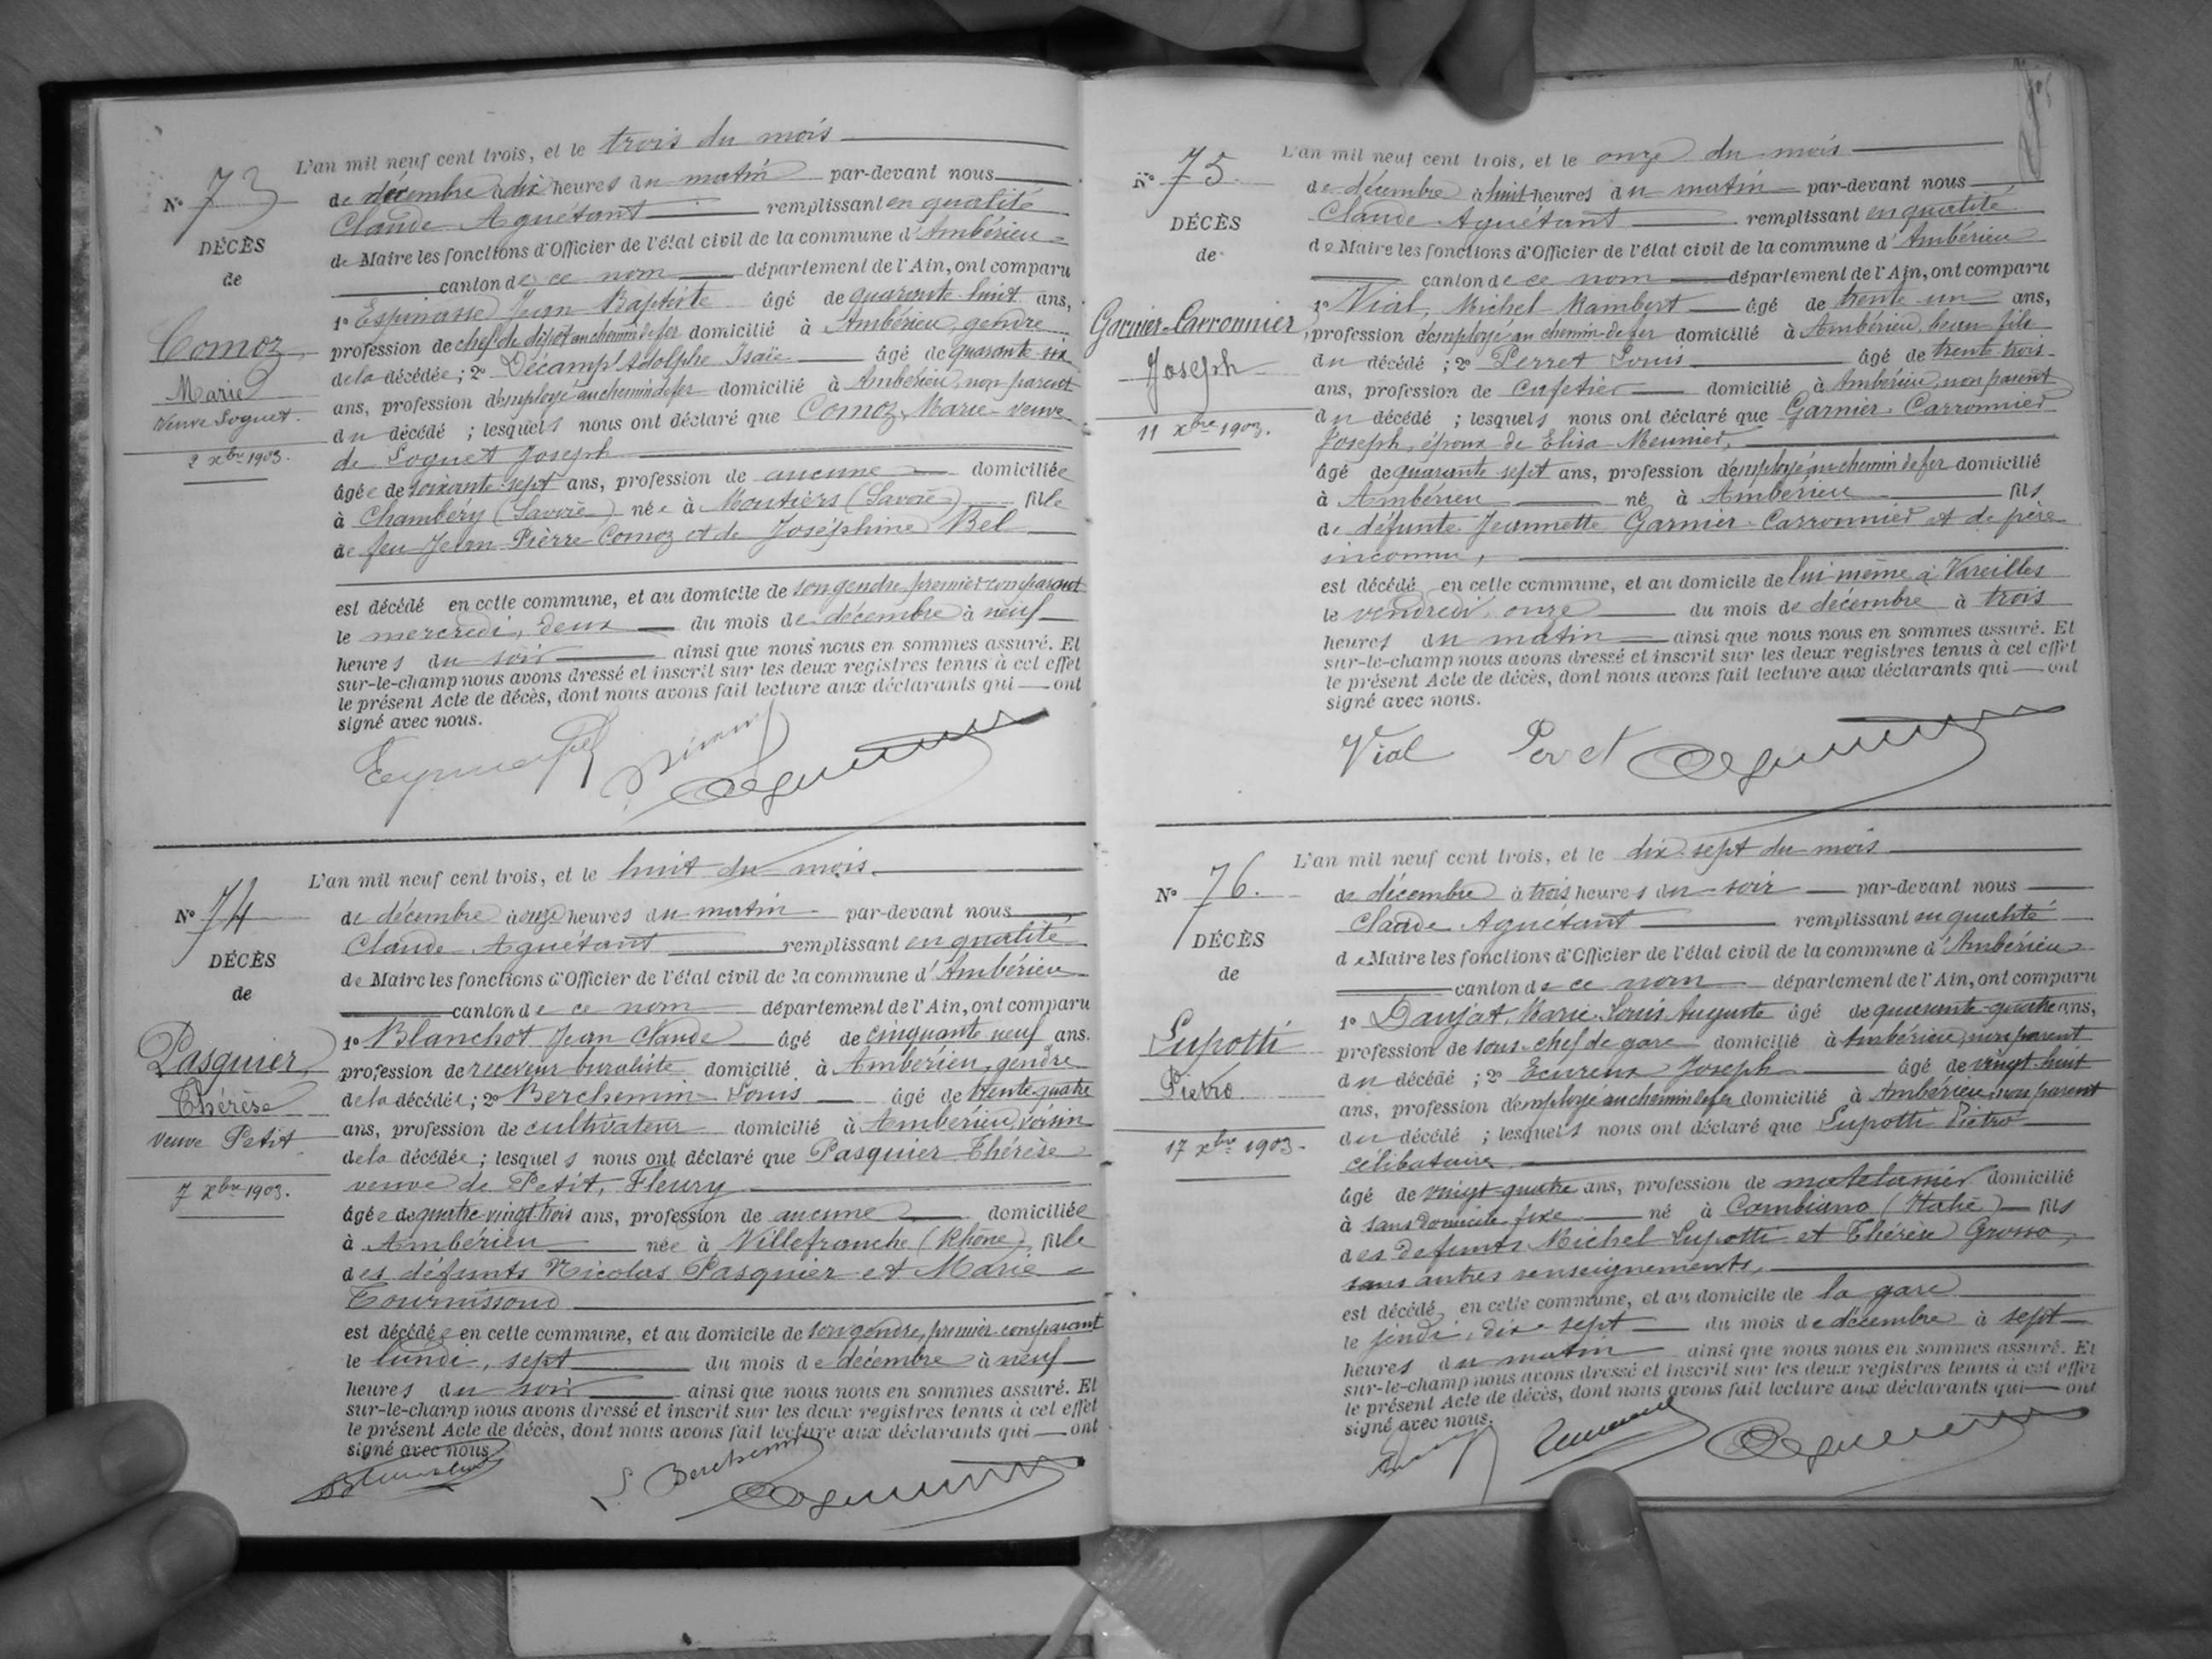 L'an mil neuf cent trois, et le trois du mois
N° 73
de décembre à dix heures du matin par-devant nous
Claude Aguétant remplissant en qualité
DÉCÈS
de Maire les fonctions d'Officier de l'état civil de la commune d'Ambérieu
de
canton de ce nom département de l'Ain, ont comparu
1° Espinasse Jean Baptiste âgé de quarante-huit ans,
Comoz
profession de chef de dépôt au chemin de fer domicilié à Ambérieu, gendre
Marie
de la décédée ; 2° Décampl Adolphe Isaïe âgé de quarante-six
Veuve Loguet.
ans, profession d'employé au chemin de fer domicilié à Ambérieu, non parent
du décédé ; lesquels nous ont déclaré que Comoz, Marie, veuve
2 xbre 1903.
de Loguet Joseph
âgée de soixante-sept ans, profession de aucune domiciliée
à Chambéry (Savoie) née à Moutiers (Savoie) fille
de feu Jean Pierre Comoz et de Joséphine Bel
est décédé en cette commune, et au domicile de son gendre, premier comparant
le mercredi, deux du mois de décembre à neuf
heures du soir ainsi que nous nous en sommes assuré. Et
sur-le-champ nous avons dressé et inscrit sur les deux registres tenus à cet effet
le présent Acte de décès, dont nous avons fait lecture aux déclarants qui ont
signé avec nous.
L'an mil neuf cent trois, et le huit du mois
N° 74
de décembre à onze heures du matin par-devant nous
Claude Aguétant remplissant en qualité
DÉCÈS
de Maire les fonctions d'Officier de l'état civil de la commune d'Ambérieu
de
canton de ce nom département de l'Ain, ont comparu
1° Blanchot Jean Claude âgé de cinquante-neuf ans.
Pasquier,
profession de receveur buraliste domicilié à Ambérieu, gendre
Thérèse
de la décédée ; 2° Berchemin Louis âgé de trente-quatre
veuve Petit
ans, profession de cultivateur domicilié à Ambérieu, voisin
de la décédée ; lesquels nous ont déclaré que Pasquier Thérèse
7 xbre 1903.
veuve de Petit, Fleury
âgée de quatre-vingt-trois ans, profession de aucune domiciliée
à Ambérieu née à Villefranche (Rhône) fille
des défunts Nicolas Pasquier et Marie
Tournissoud
est décédée en cette commune, et au domicile de son gendre, premier comparant
le lundi, sept du mois de décembre à neuf
heures du soir ainsi que nous nous en sommes assuré. Et
sur-le-champ nous avons dressé et inscrit sur les deux registres tenus à cet effet
le présent Acte de décès, dont nous avons fait lecture aux déclarants qui ont
signé avec nous.
L. Berchemin
L'an mil neuf cent trois, et le onze du mois
N° 75
de décembre à huit heures du matin par-devant nous
Claude Aguétant remplissant en qualité
DÉCÈS
de Maire les fonctions d'Officier de l'état civil de la commune d'Ambérieu
de
canton de ce nom département de l'Ain, ont comparu
1° Vial, Michel Mambert âgé de trente-un ans,
Garnier-Carronnier,
profession d'employé au chemin de fer domicilié à Ambérieu, beau-fils
Joseph
du décédé ; 2° Perret Louis âgé de trente-trois
ans, profession de cafetier domicilié à Ambérieu, non parent
11 xbre 1903.
du décédé ; lesquels nous ont déclaré que Garnier-Carronnier
Joseph, époux de Elisa Meunier,
âgé de quarante-sept ans, profession d'employé au chemin de fer domicilié
à Ambérieu né à Ambérieu fils
de défunte Jeannette Garnier-Carronnier et de père
inconnu,
est décédé en cette commune, et au domicile de lui-même à Vareilles
le vendredi onze du mois de décembre à trois
heures du matin ainsi que nous nous en sommes assuré. Et
sur-le-champ nous avons dressé et inscrit sur les deux registres tenus à cet effet
le présent Acte de décès, dont nous avons fait lecture aux déclarants qui ont
signé avec nous.
Vial Perret
L'an mil neuf cent trois, et le dix-sept du mois
N° 76.
de décembre à trois heures du soir par-devant nous
Claude Aguétant remplissant en qualité
DÉCÈS
de Maire les fonctions d'Officier de l'état civil de la commune d'Ambérieu
de
canton de ce nom département de l'Ain, ont comparu
1° Danjat, Marie Louis Auguste âgé de quarante-quatre ans,
Lupotti
profession de sous-chef de gare domicilié à Ambérieu, non parent
Pietro
du décédé ; 2° Ecureux Joseph âgé de vingt-huit
ans, profession d'employé au chemin de fer domicilié à Ambérieu, non parent
17 xbre 1903.
du décédé ; lesquels nous ont déclaré que Lupotti Pietro
célibataire
âgé de vingt-quatre ans, profession de matelassier domicilié
à sans domicile fixe né à Cambiano (Italie) fils
des défunts Michel Lupotti et Thérèse Grosso,
sans autres renseignements,
est décédé en cette commune, et au domicile de la gare
le jeudi, dix-sept du mois de décembre à sept
heures du matin ainsi que nous nous en sommes assuré. Et
sur-le-champ nous avons dressé et inscrit sur les deux registres tenus à cet effet
le présent Acte de décès, dont nous avons fait lecture aux déclarants qui ont
signé avec nous.